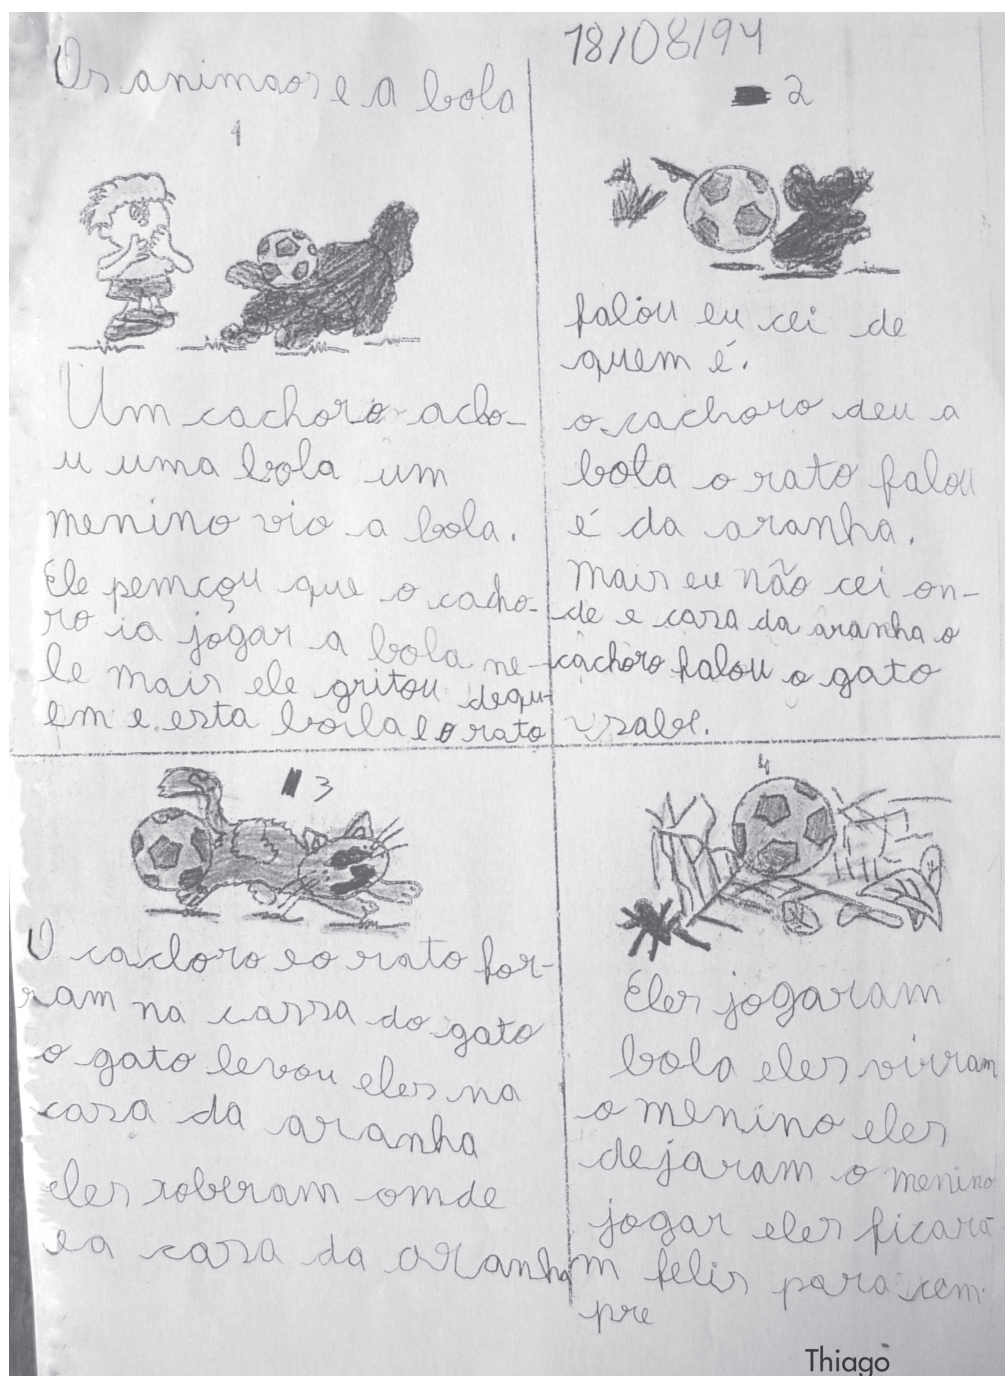 18/08/94
Os animaos e a bola
1
Um cachoro acho-
u uma bola um
menino vio a bola.
Ele pemçou que o cacho-
ro ia jogar a bola ne-
le mais ele gritou dequ-
em e esta boila e o rato
2
falou eu cei de
quem é.
o cachoro deu a
bola o rato falou
é da aranha.
mais eu não cei on-
de e casa da aranha o
cachoro falou o gato
sabe.
3
O cachoro eo rato for-
ram na cassa do gato
o gato levou eles na
casa da aranha
eles soberam omde
ea casa da aranha
4
Eles jogaram
bola eles virram
o menino eles
dejaram o menino
jogar eles ficara
m felis para cem
pre
Thiago